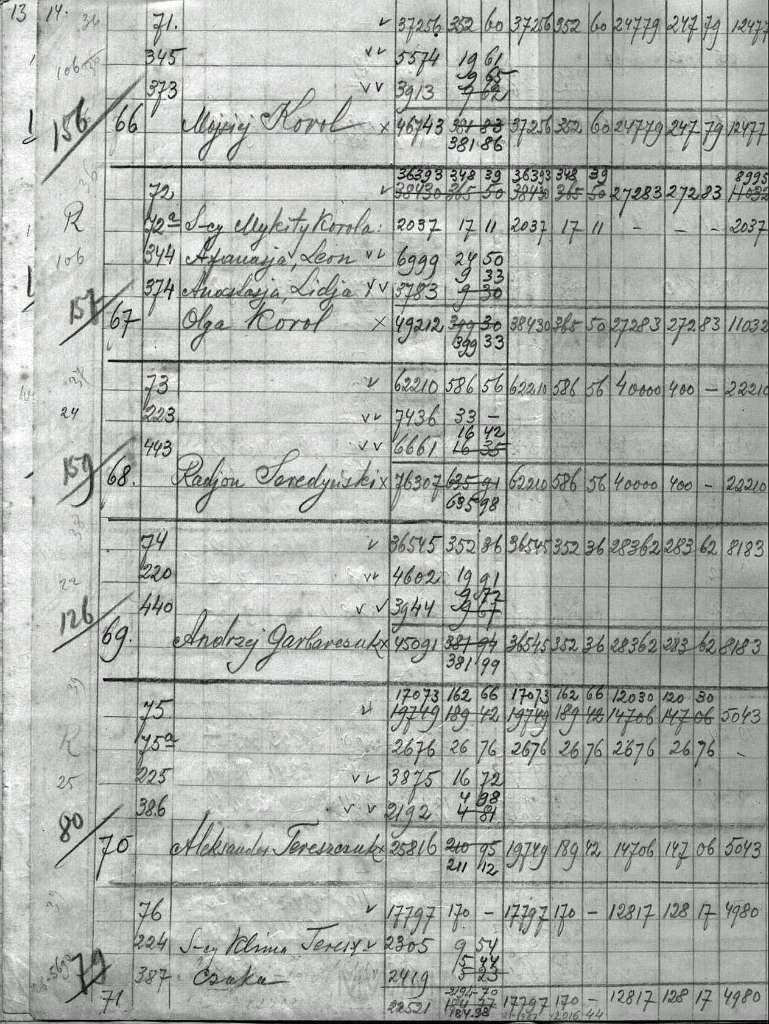 13 14. 36 71. v 37256 352 60 37256 352 60 24779 247 79 12477
345 vv 5574 19 61
9 65
373 vv 3913 9 62
156 66 Mojsij Korol x 46743 381 83 37256 352 60 24779 247 79 12477
381 86
36393 348 39 36393 348 39 8995
72 v 38430 365 50 38430 365 50 27283 272 83 11032
R 72a S-cy Mykity Korola: 2037 17 11 2037 17 11 - - - 2037
106 344 Afanasja, Leon vv 6999 24 50
9 33
374 Anastasja, Lidja vv 3783 9 30
157 67 Olga Korol x 49212 399 30 38430 365 50 27283 272 83 11032
399 33
73 v 62210 586 56 62210 586 56 40000 400 - 22210
24 223 vv 7436 33 -
16 42
443 vv 6661 16 35
159 68. Radjon Seredyński x 76307 635 91 62210 586 56 40000 400 - 22210
635 98
74 v 36545 352 36 36545 352 36 28362 283 62 8183
22 220 vv 4602 19 91
9 72
440 vv 3944 9 67
126 69. Andrzej Garbarczuk x 45091 381 94 36545 352 36 28362 283 62 8183
381 99
39 17073 162 66 17073 162 66 12030 120 30
75 v 19749 189 42 19749 189 42 14706 147 06 5043
R 75a 2676 26 76 2676 26 76 2676 26 76 -
25 225 vv 3875 16 72
4 98
386 vv 2192 4 81
80 70 Aleksander Tereszczuk x 25816 210 95 19749 189 42 14706 147 06 5043
211 12
76 v 17797 170 - 17797 170 - 12817 128 17 4980
224 S-cy Klima Teresz v 2305 9 54
5 44
79 387 czuka 2419 5 23
71 22521 184 77 17797 170 - 12817 128 17 4980
184 98